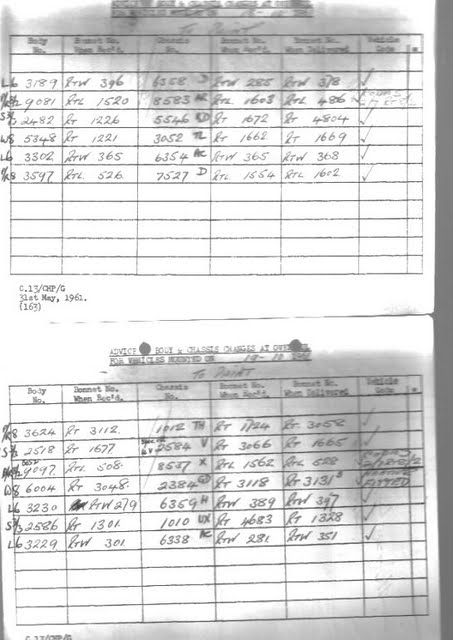 ADVICE OF BODY & CHASSIS CHANGES AT
FOR VEHICLES MOUNTED ON 18-10
TO PAINT
Body No. Bonnet No. When Rec'd. Chassis No. Bonnet No. When Rec'd. Bonnet No. When Delivered Vehicle Code *
L6 3189 RTW 396 6358 D RTW 285 RTW 378 ✓
9081 RTL 1520 8583 RTL 1603 RTL 486 ✓
2482 RT 1226 5546 RD RT 1672 RT 4804 ✓
W8 5348 RT 1221 3052 TL RT 1662 RT 1669 ✓
L6 3302 RTW 365 6354 AC RTW 365 RTW 368 ✓
3597 RTL 526 7527 D RTL 1554 RTL 1602 ✓
C.13/CHP/G
31st May, 1961.
(163)
ADVICE OF BODY & CHASSIS CHANGES AT
FOR VEHICLES MOUNTED ON 19-10
TO PAINT
Body No. Bonnet No. When Rec'd. Chassis No. Bonnet No. When Rec'd. Bonnet No. When Delivered Vehicle Code *
3624 RT 3112 1012 TH RT 1724 RT 3058 ✓
2518 RT 1677 2584 V RT 3066 RT 1665 ✓
9097 RTL 508 8537 X RTL 1562 RTL 528
W8 6004 RT 3048 2384 RT 3118 RT 3131 FITTED
L6 3230 RTW 279 6359 H RTW 389 RTW 397 ✓
2586 RT 1301 1010 UX RT 4683 RT 1328 ✓
L6 3229 RTW 301 6338 AC RTW 281 RTW 351 ✓
C.13/CHP/G